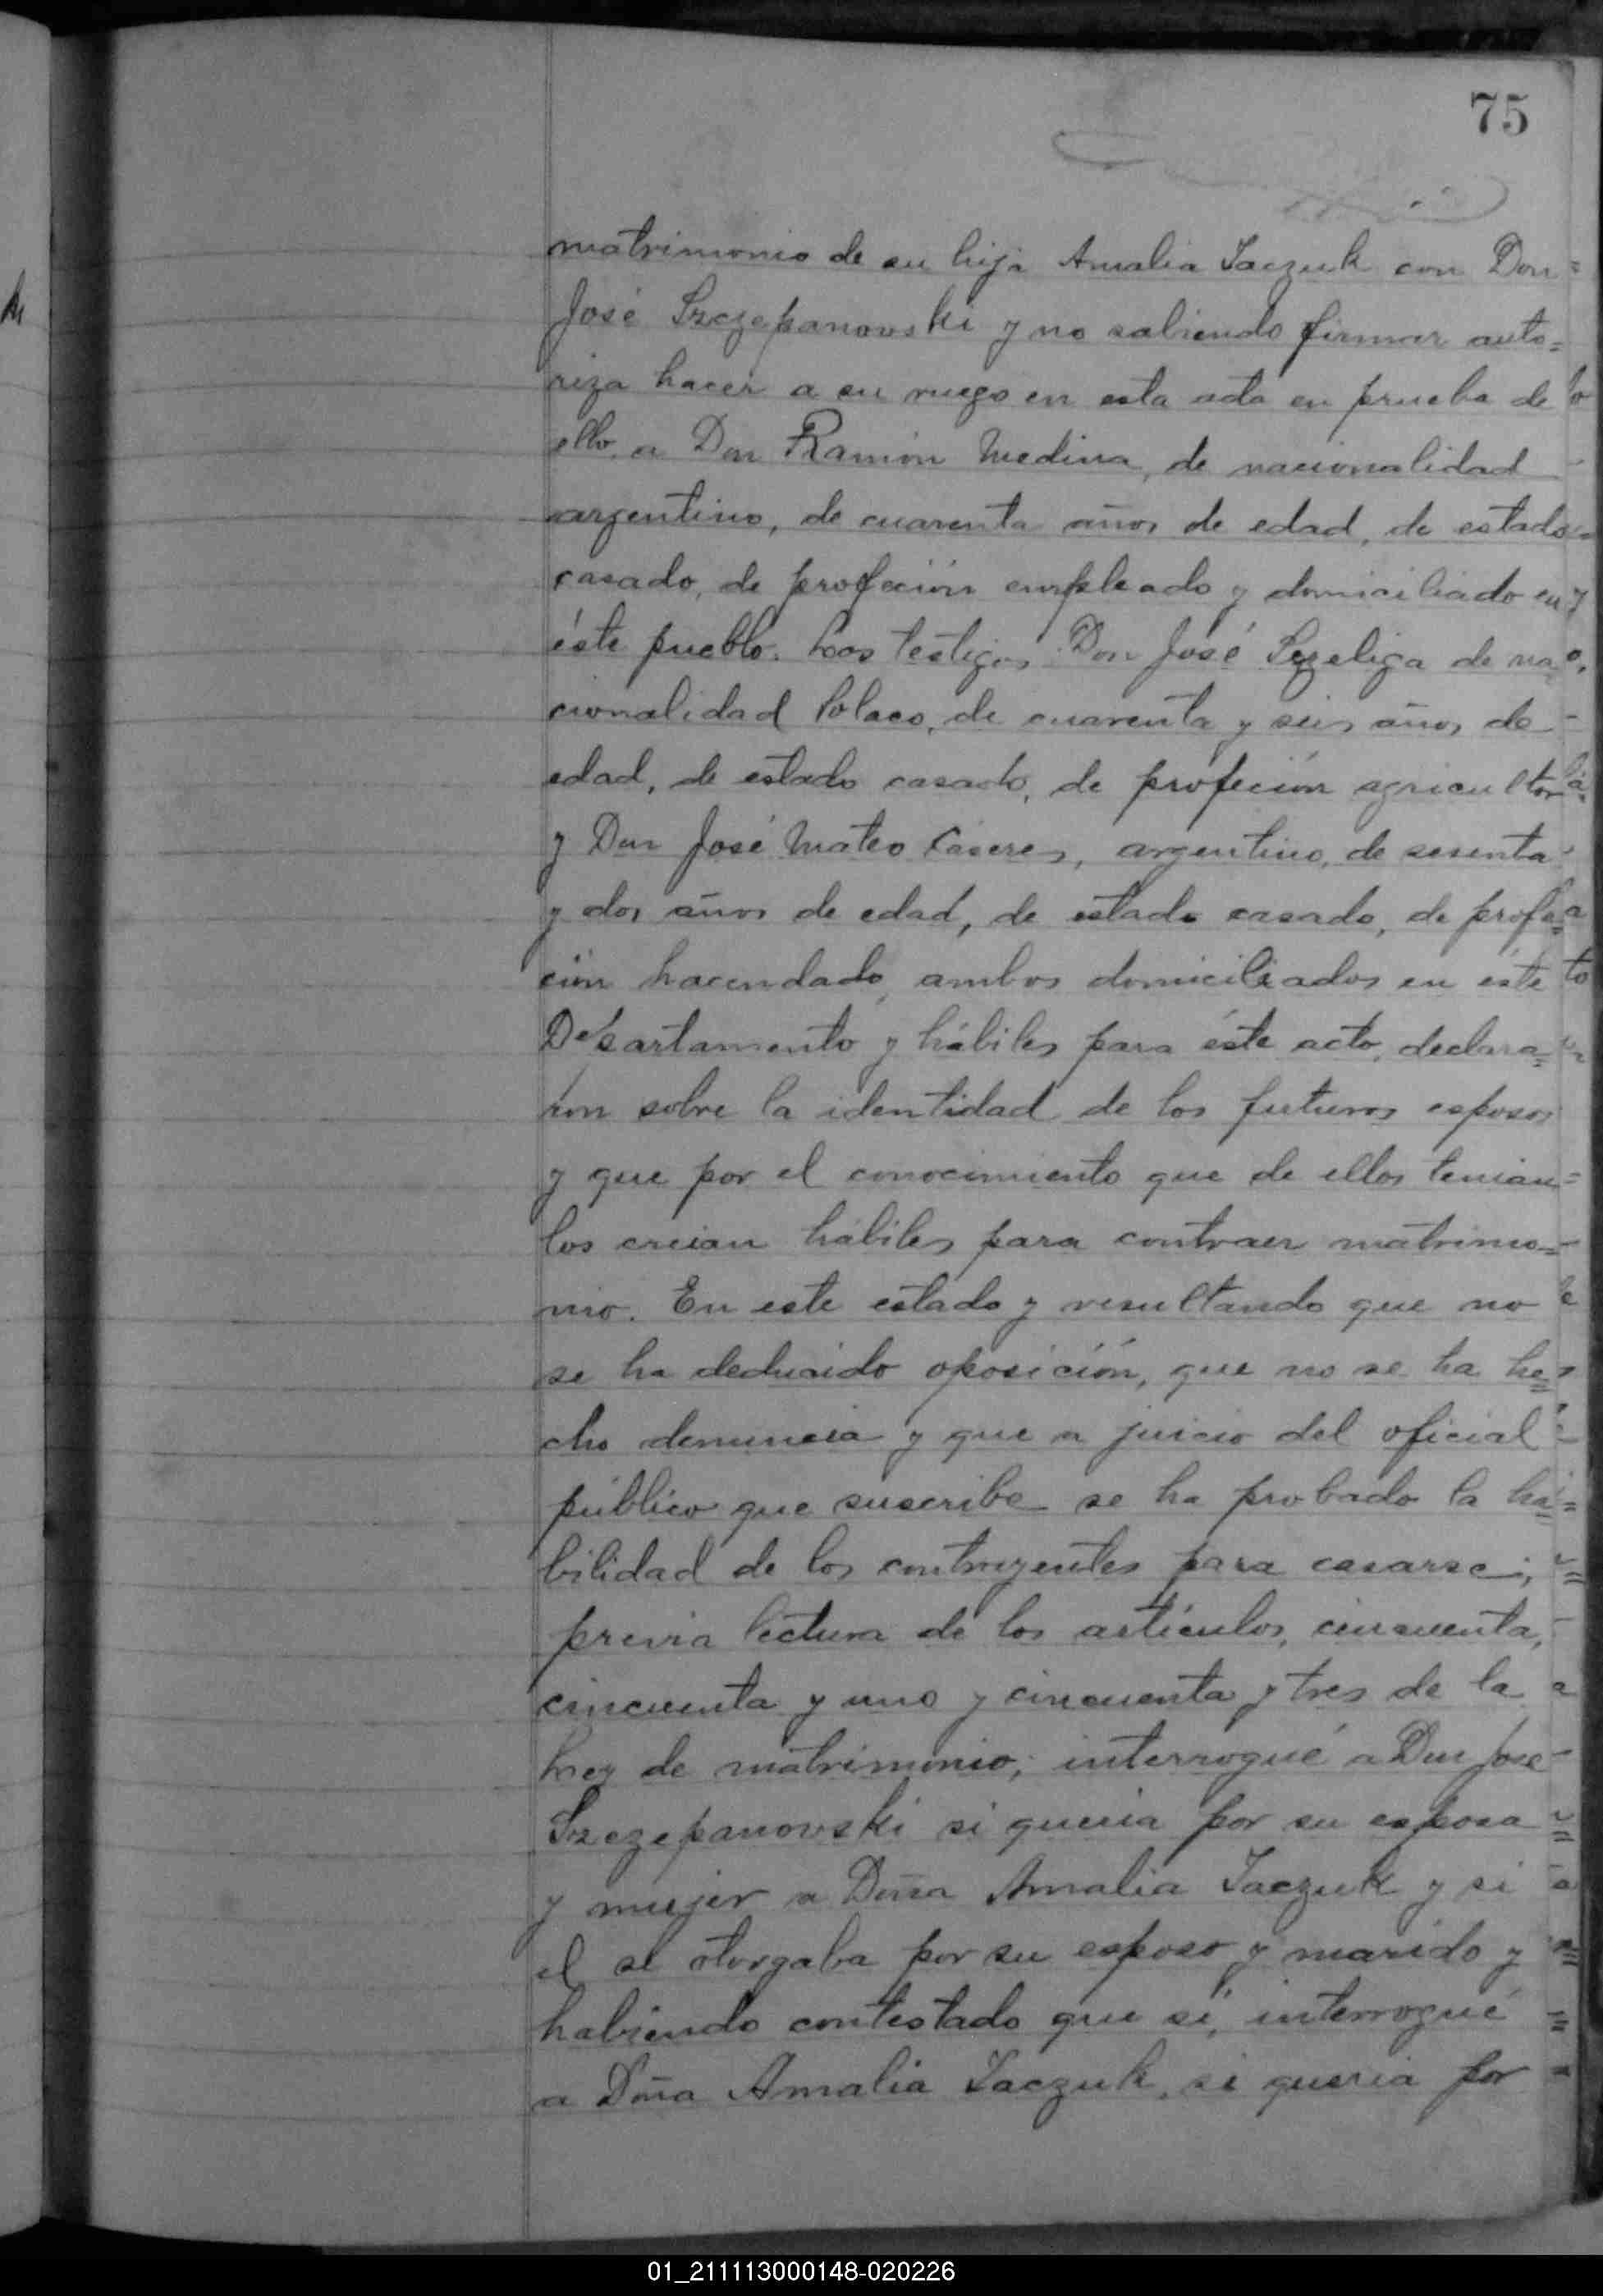 75
matrimonio de su hija Amalia Iaczuk con Don
José Szczepanovski y no sabiendo firmar auto=
riza hacer a su ruego en esta acta en prueba de
ello, a Don Ramón Medina, de nacionalidad
argentino, de cuarenta años de edad, de estado
casado, de profeción empleado y domiciliado en
éste pueblo. Los testigos Don José Szeliga de na=
cionalidad Polaco, de cuarenta y seis años de
edad, de estado casado, de profeción agricultor
y Don José Mateo Cáseres, argentino, de sesenta
y dos años de edad, de estado casado, de profe=
ción hacendado, ambos domiciliados en éste
Departamento y hábiles para éste acto, declara=
ron sobre la identidad de los futuros esposos
y que por el conocimiento que de ellos tenian
los creian hábiles para contraer matrimo=
nio. En este estado y resultando que no
se ha deducido oposición, que no se ha he=
cho denuncia y que a juicio del oficial
público que suscribe se ha probado la ha=
bilidad de los contrayentes para casarse;
previa lectura de los artículos, cincuenta,
cincuenta y uno y cincuenta y tres de la
Ley de matrimonio; interrogué a Don José
Szczepanovski si queria por su esposa
y mujer a Doña Amalia Iaczuk y si
el se otorgaba por su esposo y marido y
habiendo contestado que sí, interrogué
a Doña Amalia Iaczuk, si queria por
01_211113000148-020226